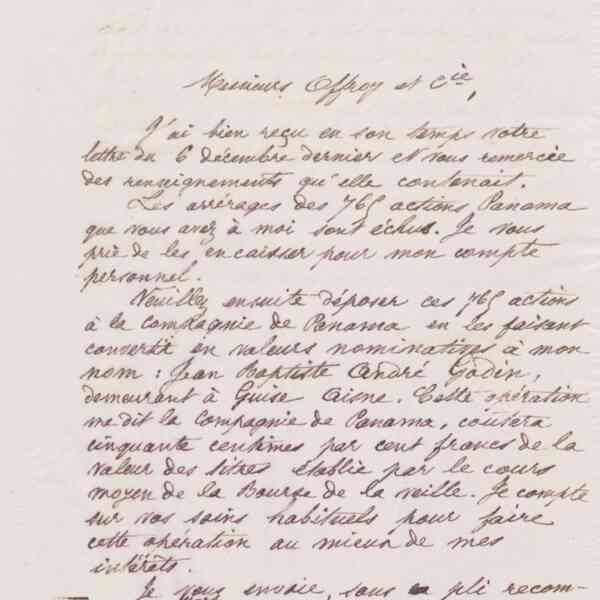 Messieurs Offroy et Cie,
J'ai bien reçu en son temps votre
lettre du 6 décembre dernier et vous remercie
des renseignements qu'elle contenait.
Les arrérages des 765 actions Panama
que vous avez à moi sont échus. Je vous
prie de les encaisser pour mon compte
personnel.
Veuillez ensuite déposer ces 765 actions
à la Compagnie de Panama en les faisant
convertir en valeurs nominatives à mon
nom : Jean Baptiste André Godin,
demeurant à Guise Aisne. Cette opération
me dit la Compagnie de Panama, coûtera
cinquante centimes par cent francs de la
valeur des titres établie par le cours
moyen de la Bourse de la veille. Je compte
sur vos soins habituels pour faire
cette opération au mieux de mes
intérêts.
Je vous envoie, sous pli recom-